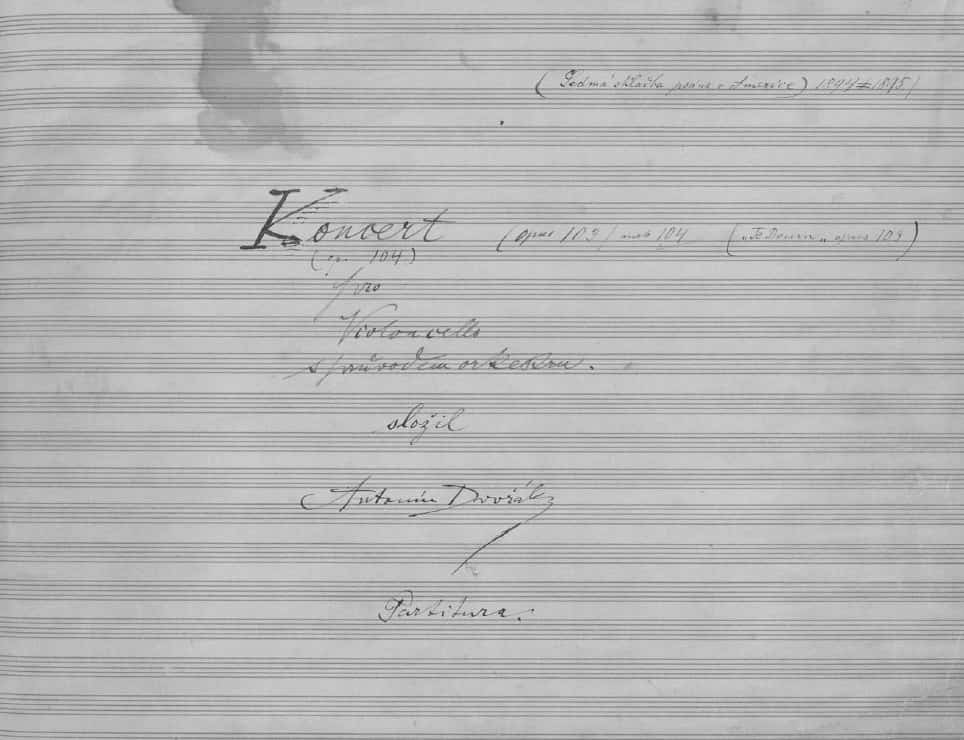 (Sedmá skladba psána v Americe) 1894 1895)
Koncert (opus 103) neb 104 („Te Deum„ opus 103)
(op. 104)
pro
Violoncello
s průvodem orkestru.
složil
Antonín Dvořák
Partitura.